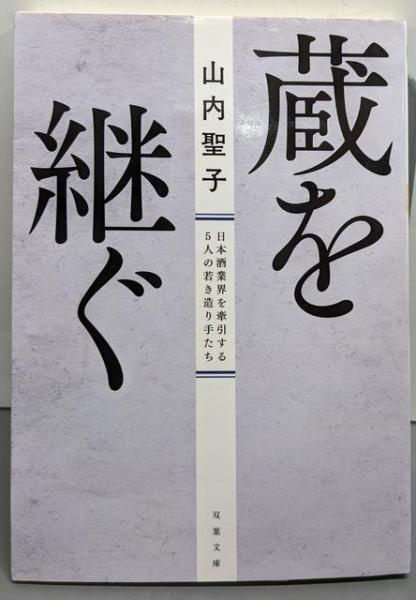 蔵を
継ぐ
山内聖子
日本酒業界を牽引する
5人の若き造り手たち
双葉文庫